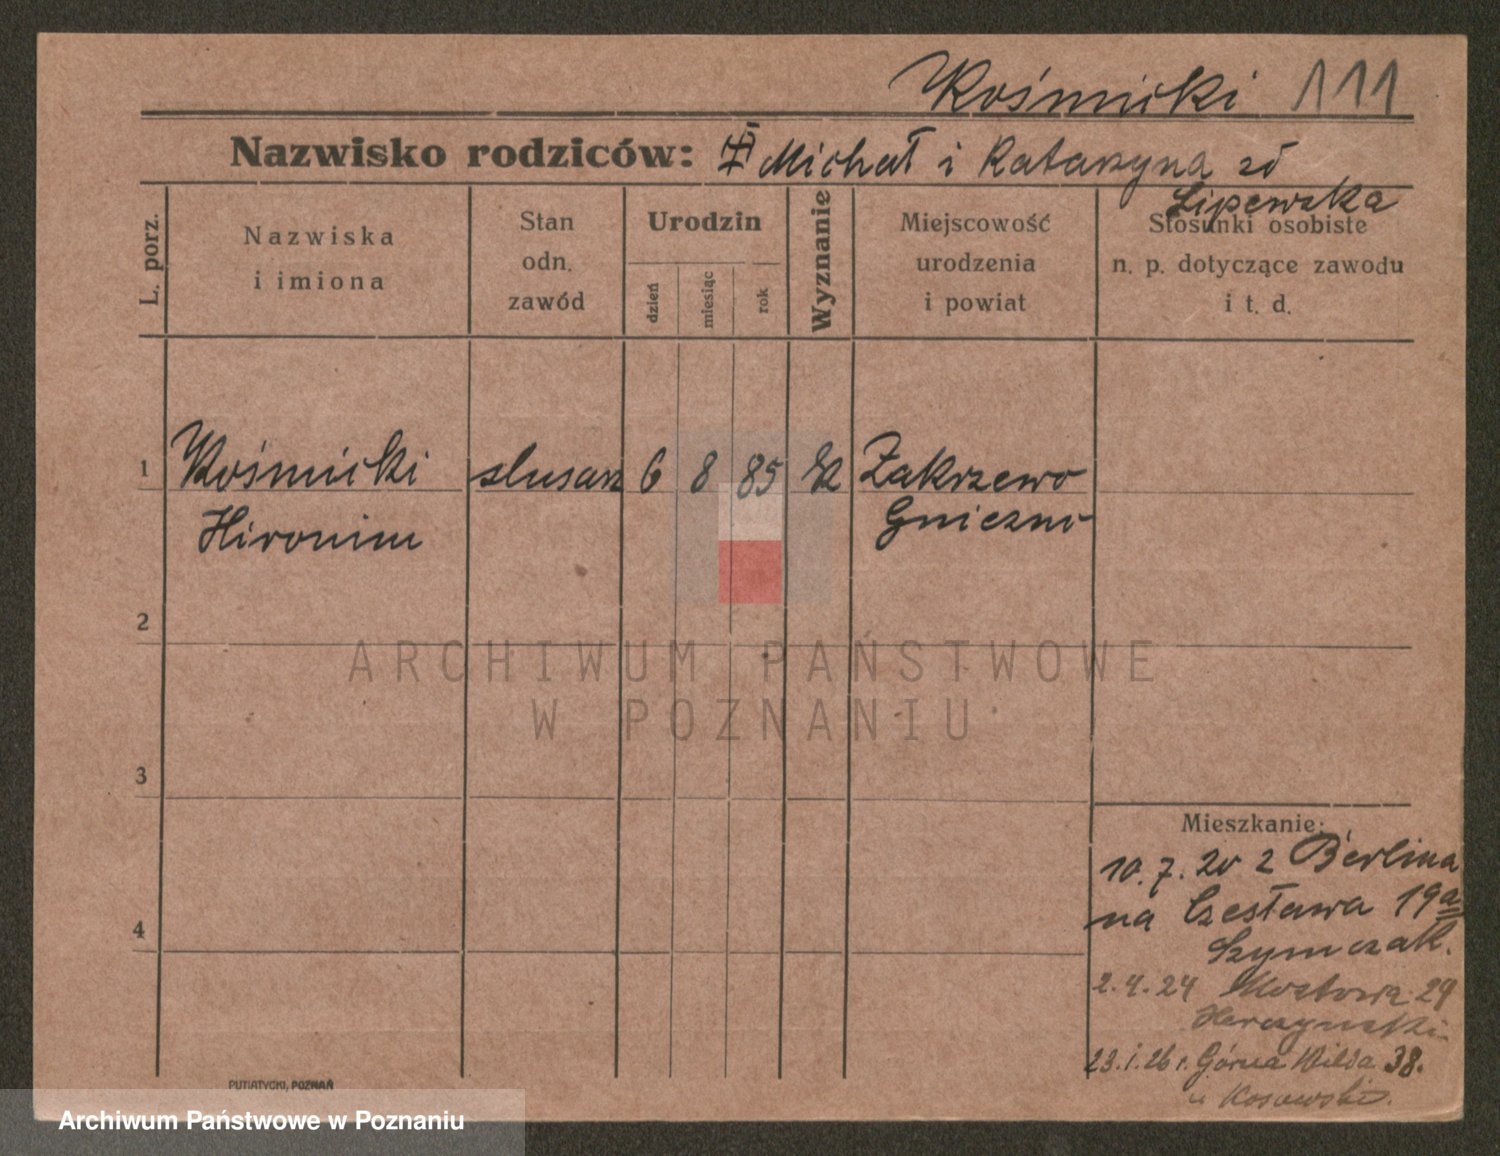 Kośmicki 111
Nazwisko rodziców: Michał i Katarzyna zd
Lipewska
L. porz.
Nazwiska
i imiona
Stan
odn.
zawód
Urodzin
dzień
miesiąc
rok
Wyznanie
Miejscowość
urodzenia
i powiat
Stosunki osobiste
n. p. dotyczące zawodu
i t. d.
1 Kośmicki slusarz 6 8 85 Zakrzewo
Hironim Gniezno
2
ARCHIWUM PAŃSTWOWE
W POZNANIU
3
Mieszkanie:
10.7.20 z Berlina
na Czesława 19a
4
Szymczak.
2.4.24 Mostowa 29
23.1.26 r. Górna Wilda 38.
u Kosowski.
PUTIATYCKI, POZNAŃ
Archiwum Państwowe w Poznaniu